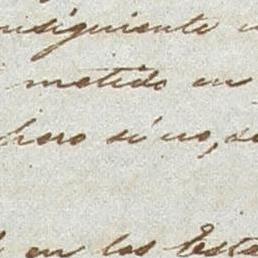 nsiguiente
metido en
pero si no, se
en los Esta